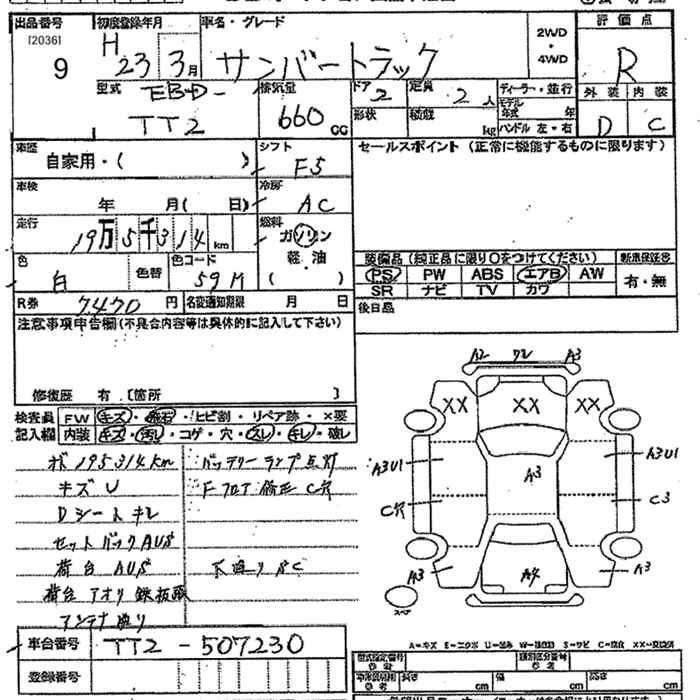 出品番号 初度登録年月 車名・グレード 評価点
[2036]
9 H 23 3月 サンバートラック 2WD・4WD R
型式 EBD- TT2 排気量 660 CC ドア 2 定員 2人 ディーラー・並行
形状 積載 kg モデル年式 年 ハンドル 左・右
外装 内装
D C
車歴 自家用・( ) シフト F5 セールスポイント(正常に機能するものに限ります)
車検 年 月( 日) 冷房 AC
走行 19万5千314 km 燃料 ガソリン 軽・油 ( )
色 白 色替 色コード 59M
装備品(純正品に限り○をつけてください) 新車保証書
PS PW ABS エアB AW 有・無
SR ナビ TV カワ
R券 7470円 名変通知期限 月 日 後日品
注意事項申告欄(不具合内容等は具体的に記入して下さい)
修復歴 有 [箇所 ]
検査員 FW キズ・飛石・ヒビ割・リペア跡・×要
記入欄 内装 キズ・汚れ・コゲ・穴・スレ・キレ・破レ
メ 195314km バッテリーランプ点灯
キズU Fフロア修正 C穴
Dシートキレ
セットバックAUS
荷台AUS 下廻りSC
荷台アオリ鉄板
アンテナ
A2 A3
XX XX XX
A3U1 A3 A3U1
C穴 C3
A3 A4 A3
スペア
車台番号 TT2-507230
登録番号
A=キズ E=エクボ U=凹み W=補修跡 S=サビ C=腐食 XX=交換済
型式指定番号 類別区分番号
長さ cm 幅 cm 高さ cm